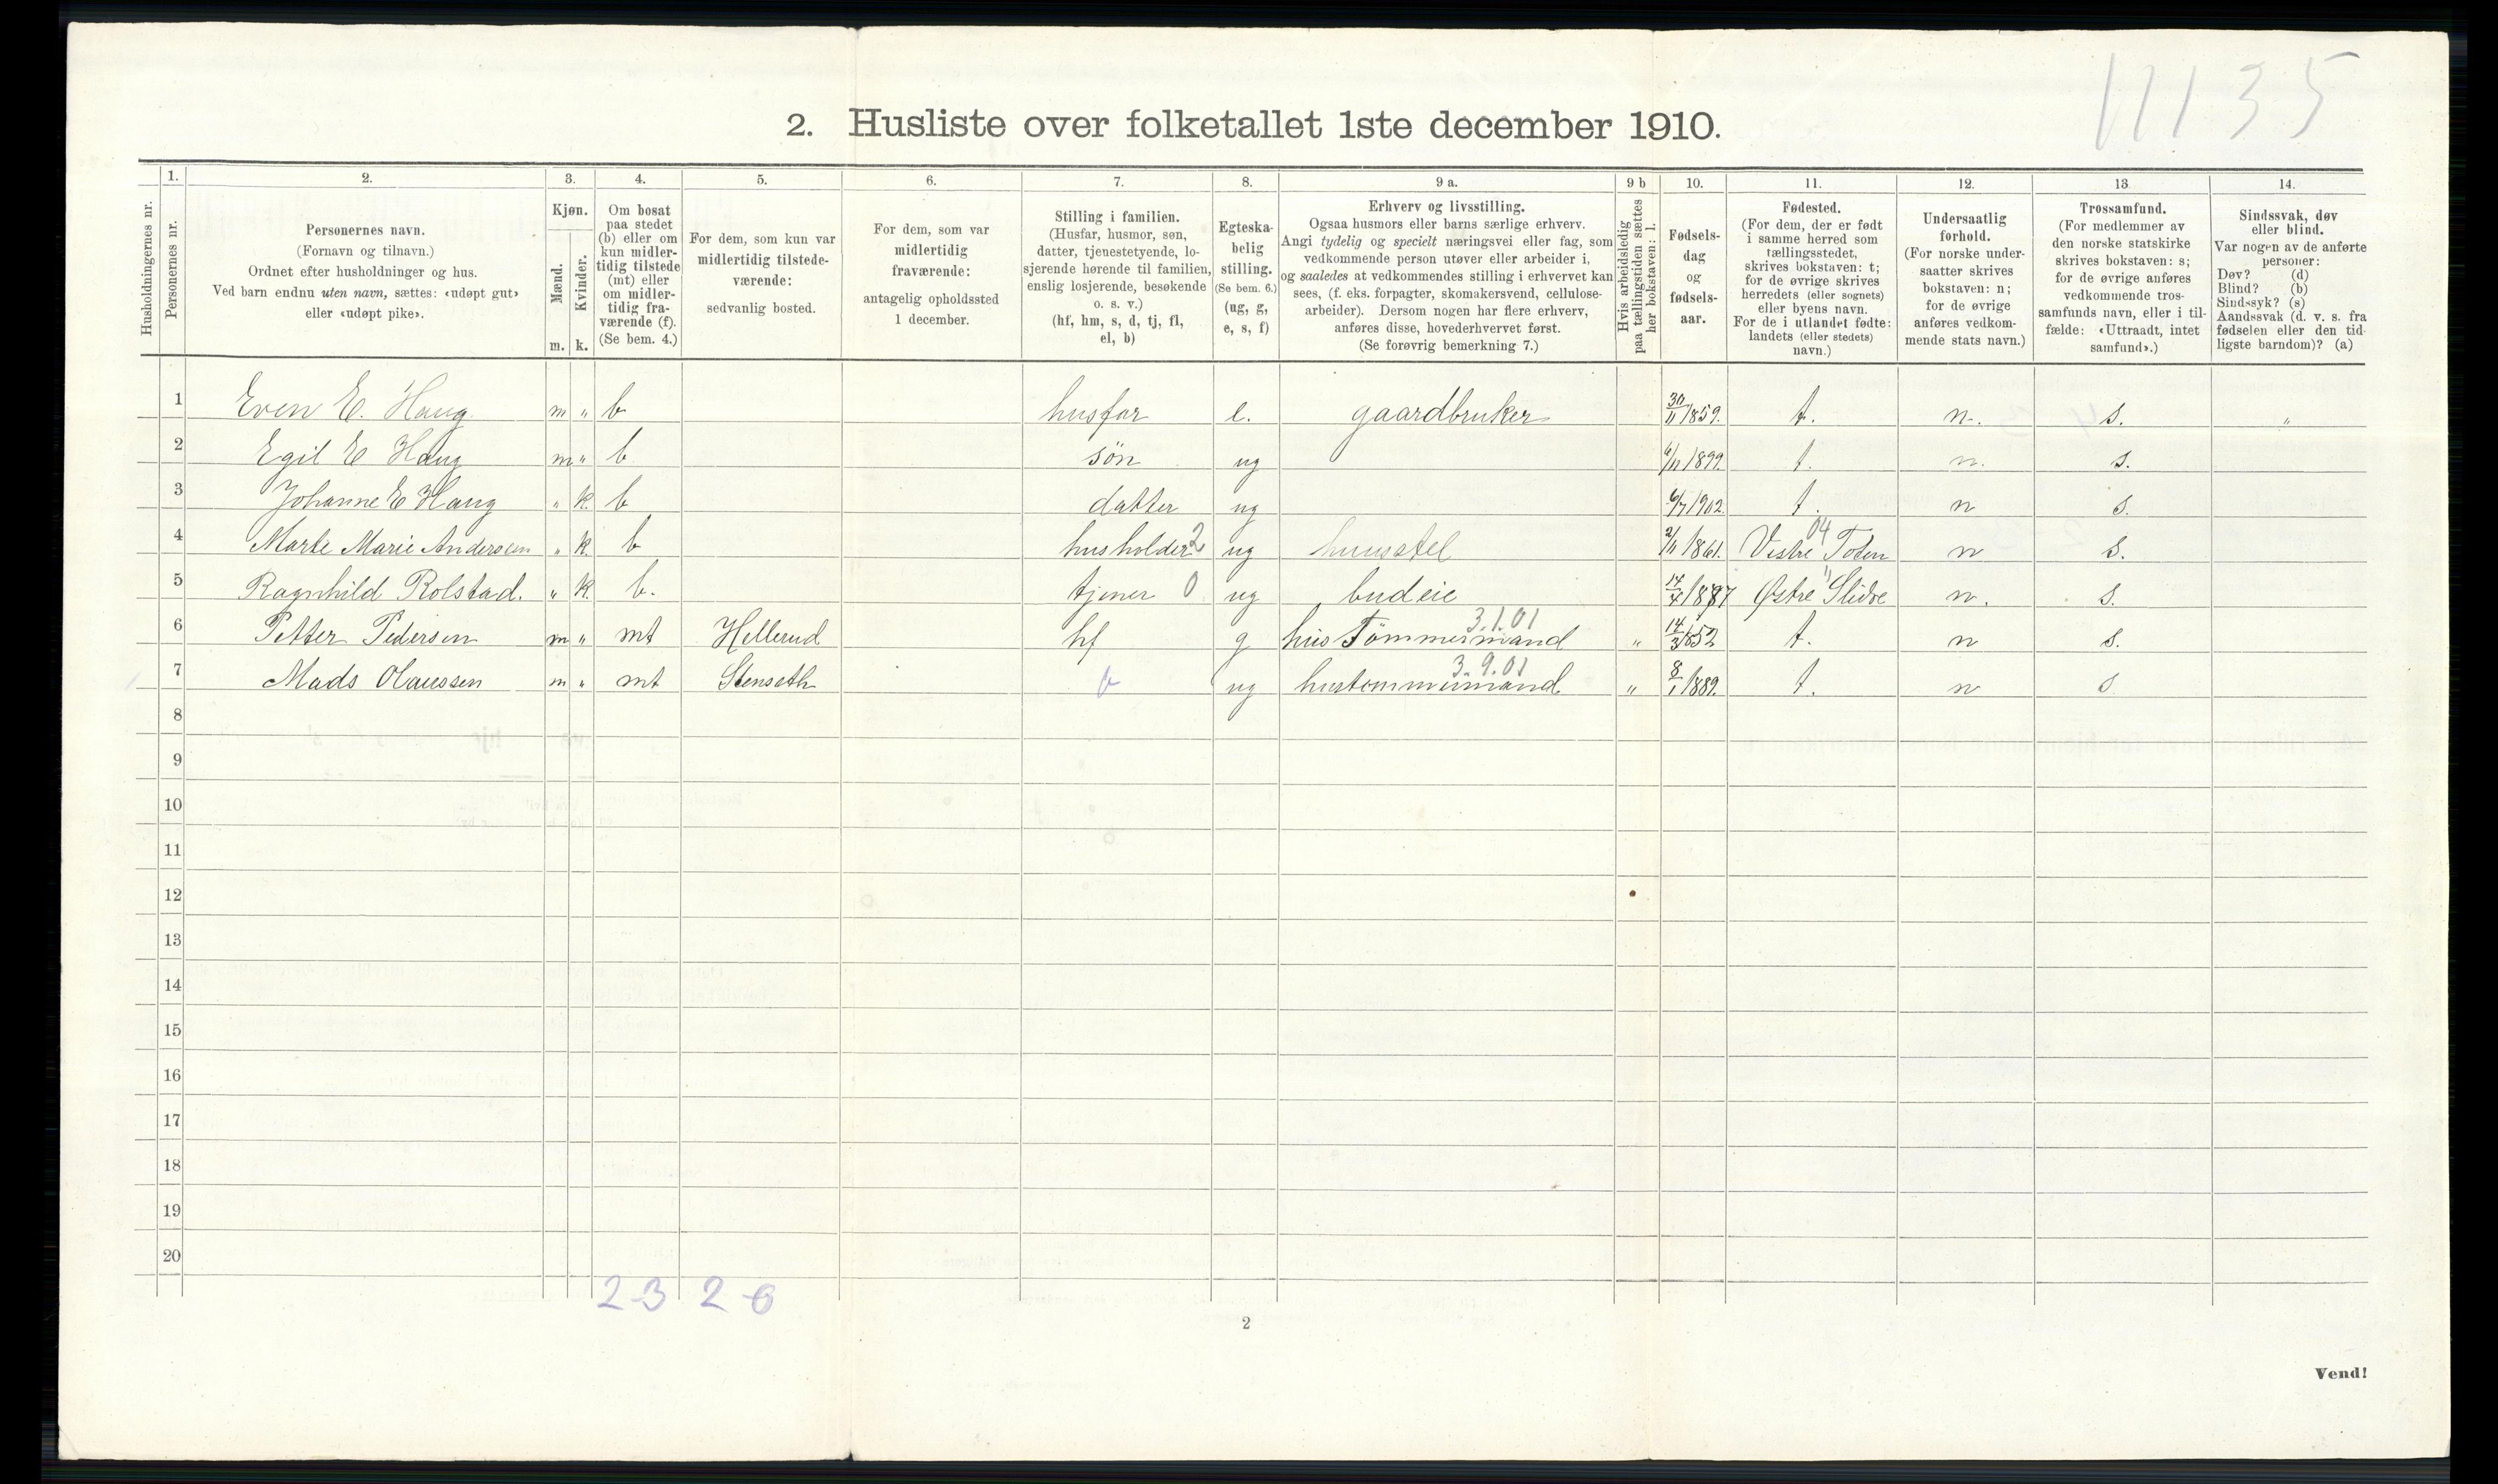 11135
2. Husliste over folketallet 1ste december 1910.
Husholdningernes nr.
1.
Personernes nr.
2.
Personernes navn.
(Fornavn og tilnavn.)
Ordnet efter husholdninger og hus.
Ved barn endnu uten navn, sættes: «udøpt gut»
eller «udøpt pike».
3.
Kjøn.
Mænd.
Kvinder.
m. k.
4.
Om bosat
paa stedet
(b) eller om
kun midler-
tidig tilstede
(mt) eller
om midler-
tidig fra-
værende (f).
(Se bem. 4.)
5.
For dem, som kun var
midlertidig tilstede-
værende:
sedvanlig bosted.
6.
For dem, som var
midlertidig
fraværende:
antagelig opholdssted
1 december.
7.
Stilling i familien.
(Husfar, husmor, søn,
datter, tjenestetyende, lo-
sjerende hørende til familien,
enslig losjerende, besøkende
o. s. v.)
(hf, hm, s, d, tj, fl,
el, b)
8.
Egteska-
belig
stilling.
(Se bem. 6.)
(ug, g,
e, s, f)
9 a.
Erhverv og livsstilling.
Ogsaa husmors eller barns særlige erhverv.
Angi tydelig og specielt næringsvei eller fag, som
vedkommende person utøver eller arbeider i,
og saaledes at vedkommendes stilling i erhvervet kan
sees, (f. eks. forpagter, skomakersvend, cellulose-
arbeider). Dersom nogen har flere erhverv,
anføres disse, hovederhvervet først.
(Se forøvrig bemerkning 7.)
9 b
Hvis arbeidsledig
paa tællingstiden sættes
her bokstaven: l.
10.
Fødsels-
dag
og
fødsels-
aar.
11.
Fødested.
(For dem, der er født
i samme herred som
tællingsstedet,
skrives bokstaven: t;
for de øvrige skrives
herredets (eller sognets)
eller byens navn.
For de i utlandet fødte:
landets (eller stedets)
navn.)
12.
Undersaatlig
forhold.
(For norske under-
saatter skrives
bokstaven: n;
for de øvrige
anføres vedkom-
mende stats navn.)
13
Trossamfund.
(For medlemmer av
den norske statskirke
skrives bokstaven: s;
for de øvrige anføres
vedkommende tros-
samfunds navn, eller i til-
fælde: «Uttraadt, intet
samfund».)
14.
Sindssvak, døv
eller blind.
Var nogen av de anførte
personer:
Døv? (d)
Blind? (b)
Sindssyk? (s)
Aandssvak (d. v. s. fra
fødselen eller den tid-
ligste barndom)? (a)
1 Even E. Haug m „ b husfar e. gaardbruker 30/11 1859. t. n. s. „
2 Egil E Haug m „ b søn ug 6/11 1899. t. n. s.
3 Johanne E Haug „ k. b datter ug 6/7 1902. t. n s.
4 Marte Marie Andersen „ k. b husholder 2 ug huusstel 2/11 1861. Vestre Toten 04 n s.
5 Ragnhild Rolstad. „ k. b. tjener 0 ug budeie 14/4 1887 Østre Slidre n. s.
6 Petter Pedersen m „ mt Hellerud hf g hus Tømmermand 3.1.01 „ 14/3 1852 t. n s.
7 Mads Olaussen m „ mt Stenseth b ug hustømmermand 3.9.01 „ 8/1 1889. t. n s
8
9
10
11
12
13
14
15
16
17
18
19
20
2-3 2-0
2
Vend!